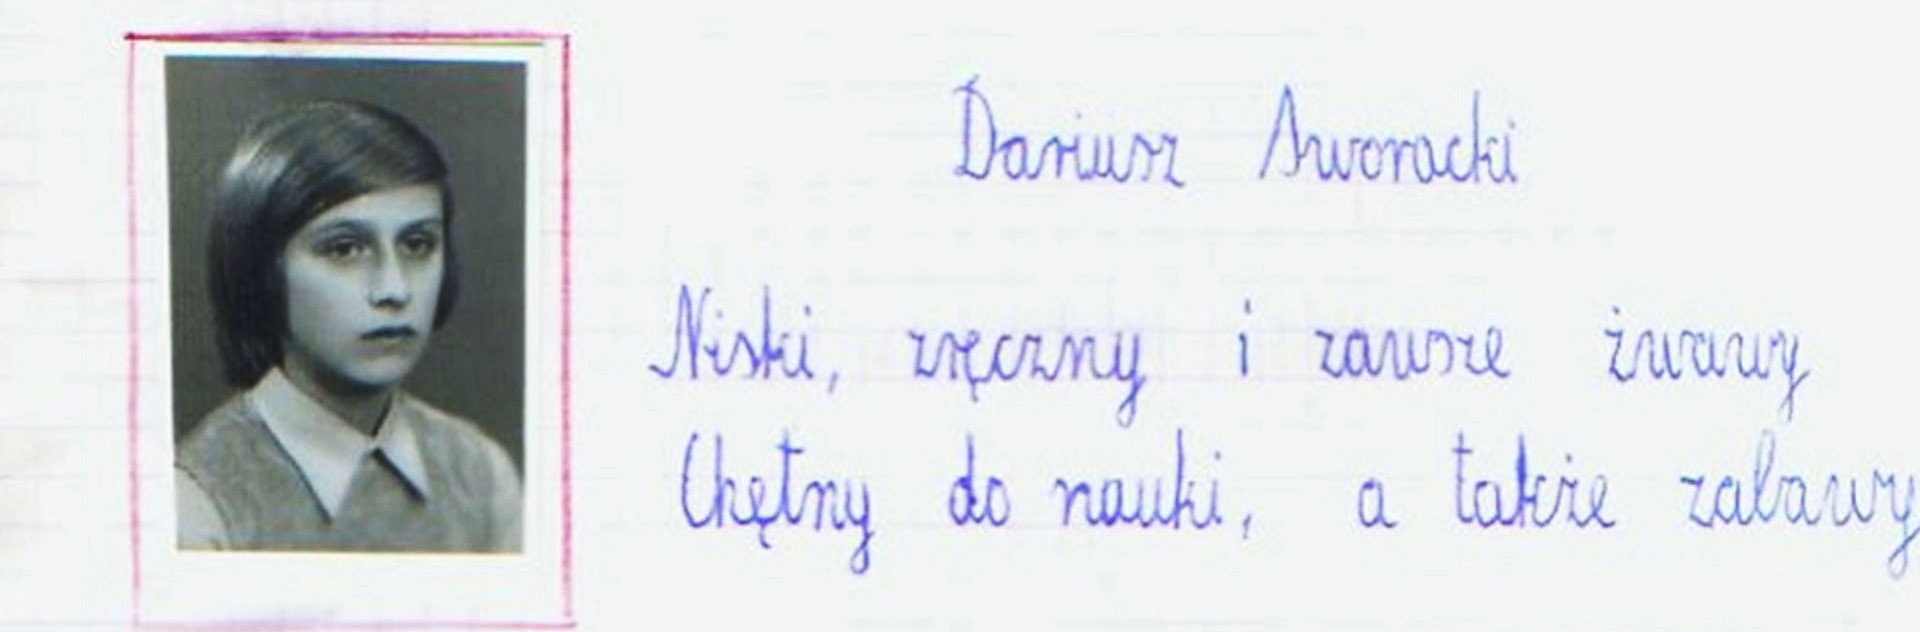 Dariusz Sworacki
Niski, zręczny i zawsze żwawy
Chętny do nauki, a także zabawy